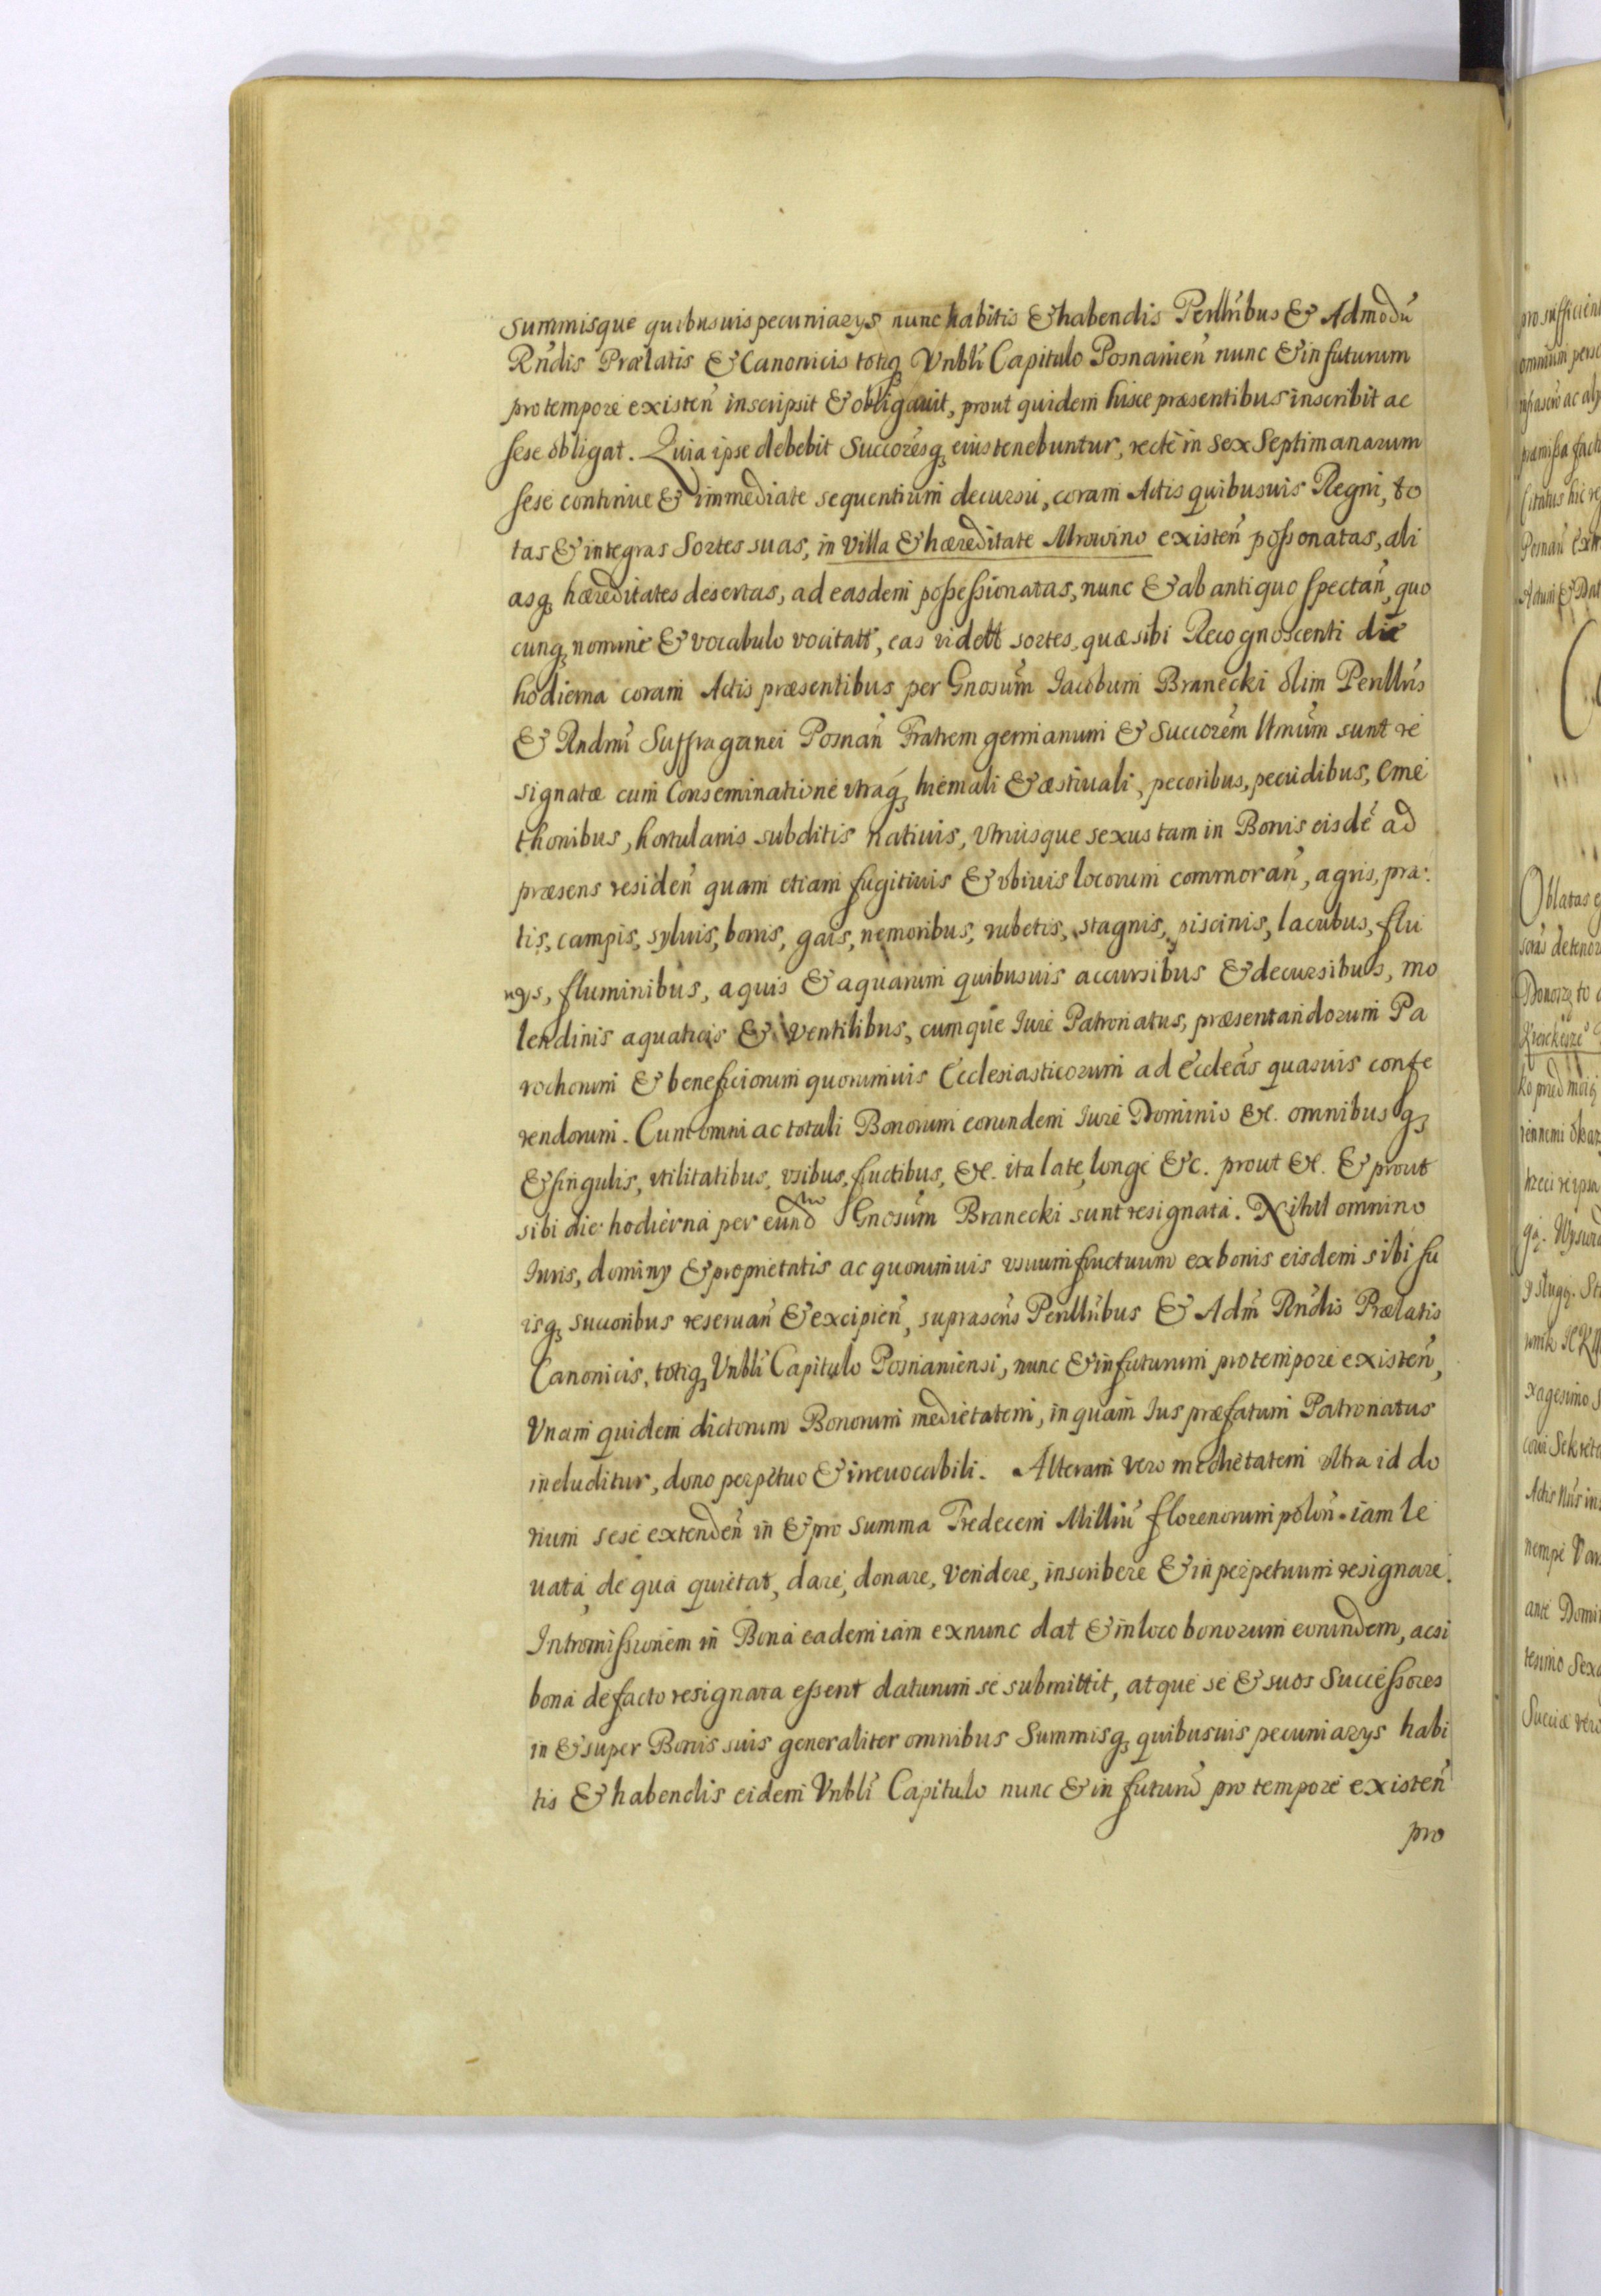 summisque quibusuis pecuniarys nunc habitis & habendis Perllribus & Admodū
Rndis Prælatis & Canonicis totiq Vnbli Capitulo Posnanien nunc & in futurum
pro tempore existen inscripsit & obligauit, prout quidem hisce præsentibus inscribit ac
sese obligat. Quia ipse debebit Succoresq eius tenebuntur, recte in sex Septimanarum
sese continue & immediate sequentium decursu, coram Actis quibusuis Regni, to
tas & integras Sortes suas, in Villa & hæreditate Mrowino existen possonatas, ali
asq hæreditates desertas, ad easdem possessionatas, nunc & ab antiquo spectan, quo
cunq nomine & vocabulo vocitatt, eas vidett sortes, quæ sibi Recognoscenti die
hodierna coram Actis præsentibus per Gnosum Iacobum Branecki olim Perllris
& Rndmi Suffraganei Posnan Fratrem germanum & Succorem Vtmum sunt re
signatæ cum Conseminatione vtraq hiemali & æstiuali, pecoribus, pecudibus, Cme
thonibus, hortulanis subditis natiuis, vtriusque sexus tam in Bonis eisdē ad
præsens residen quam etiam fugitiuis & vbiuis locorum commoran, agris, pra:
tis, campis, syluis, borris, gais, nemoribus, rubetis, stagnis, piscinis, lacubus, flu
uys, fluminibus, aquis & aquarum quibusuis accursibus & decursibus, mo
lendinis aquaticis & ventilibus, cumque Iure Patronatus, præsentandorum Pa
rochorum & beneficiorum quorumuis Ecclesiasticorum ad Eccleas quasuis confe
rendorum. Cum omni ac totali Bonorum eorundem Iure Dominio &c. omnibusq
& singulis, vtilitatibus, vsibus, fuctibus, &c. ita late, longe &c. prout &c. & prout
sibi die hodierna per eund Gnosum Branecki sunt resignata. Nihil omnino
Iuris, dominy & proprietatis ac quorumuis vsuumfructuum ex bonis eisdem sibi su
isq succoribus reseruan & excipien, suprascris Perllribus & Adm Rndis Prælatis
Canonicis, totiq Vnbli Capitulo Posnaniensi, nunc & in futurum pro tempore existen,
Vnam quidem dictorum Bonorum medietatem, in quam Ius præfatum Patronatus
includitur, dono perpetuo & irreuocabili. Alteram vero medietatem vltra id do
num sese extenden in & pro summa Tredecem Milliū florenorum polon. iam le
uata, de qua quietat, dare, donare, vendere, inscribere & in perpetuum resignare.
Intromissionem in Bona eadem iam exnunc dat & in loco bonorum eorundem, acsi
bona de facto resignata essent daturum se submittit, atque se & suos Successores
in & super Bonis suis generaliter omnibus Summisq quibusuis pecuniarys habi
tis & habendis eidem Vnbli Capitulo nunc & in futurū pro tempore existen
pro